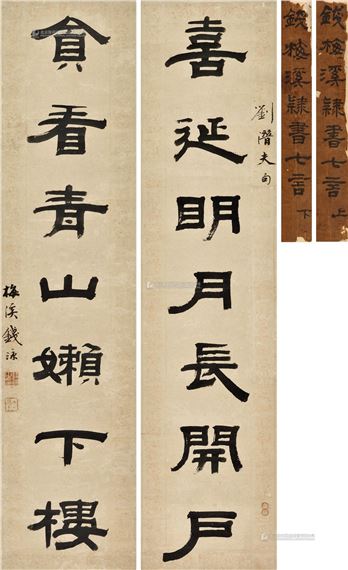 喜延明月長開戶
劉潛夫句
貪看青山嬾下樓
梅溪錢泳
錢梅溪隸書七言 上
錢梅溪隸書七言 下